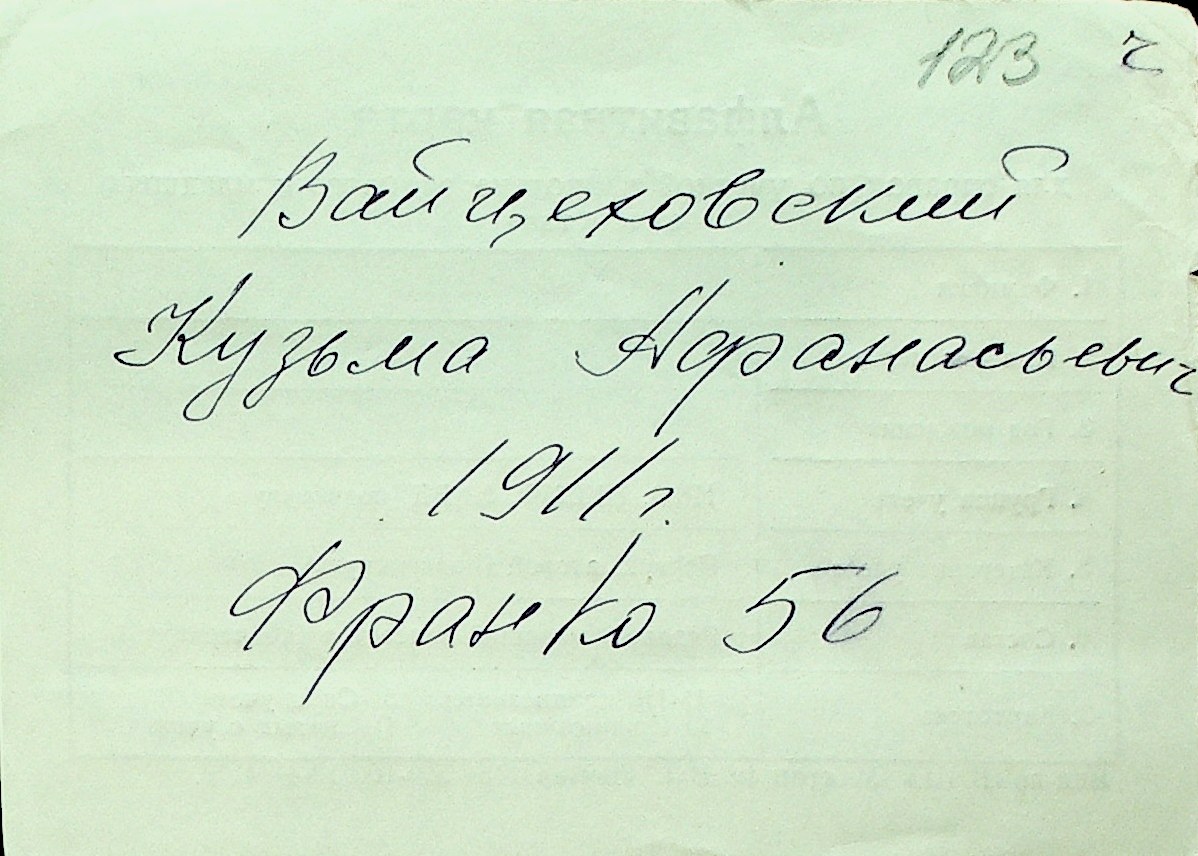 123 ч
Вайцеховский
Кузьма Афанасьевич
1911г.
Франко 56